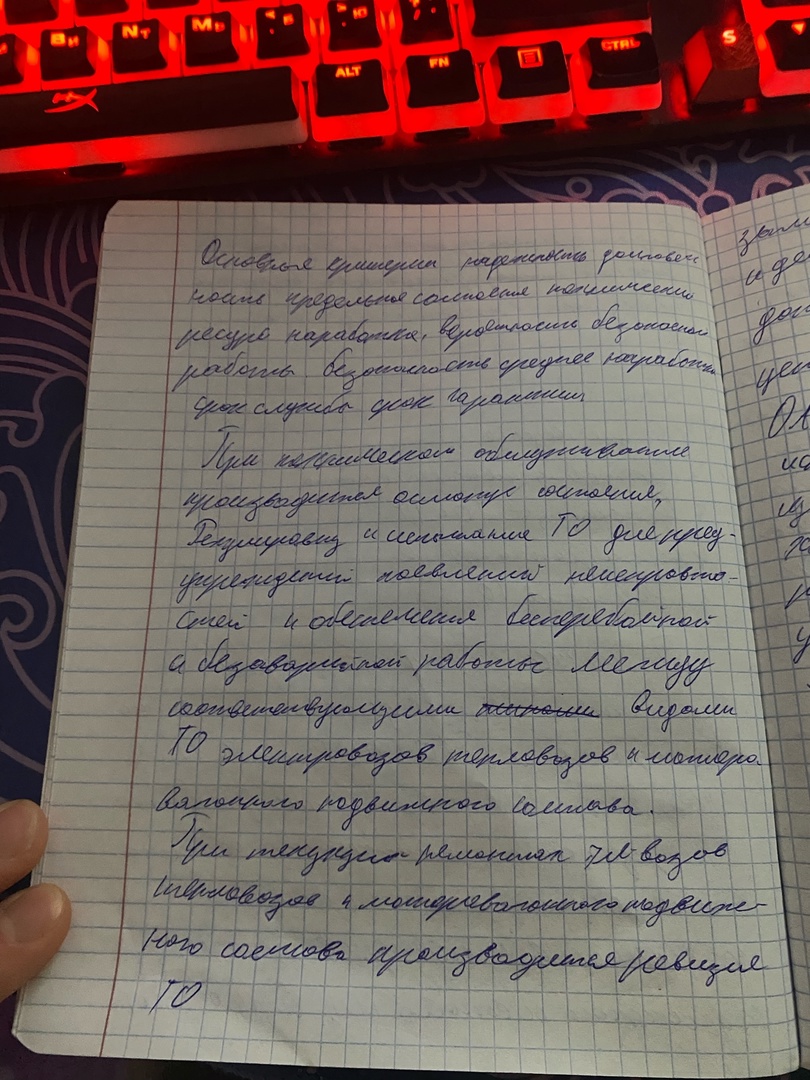 Вн
Nт
Мь
ALT
FN
CTRL
S
Основные критерии надежность долговеч
ность предельное состояние
ресурс наработка, вероятность безотказной
работы безотказность среднее наработки
срок службы срок гарантии
При техническом обслуживание
производится осмотр состояния,
Регулировка и испытание ТО для пред-
упреждений появлений неисправно-
стей и обеспечения бесперебойной
и безаварийной работы между
соответствующими видами
ТО электровозов тепловозов и мотора
вагонного подвижного состава.
При текущих ремонтах эл-возов
тепловозов и моторевагонного подвиж-
ного состава производится ревизия
ТО